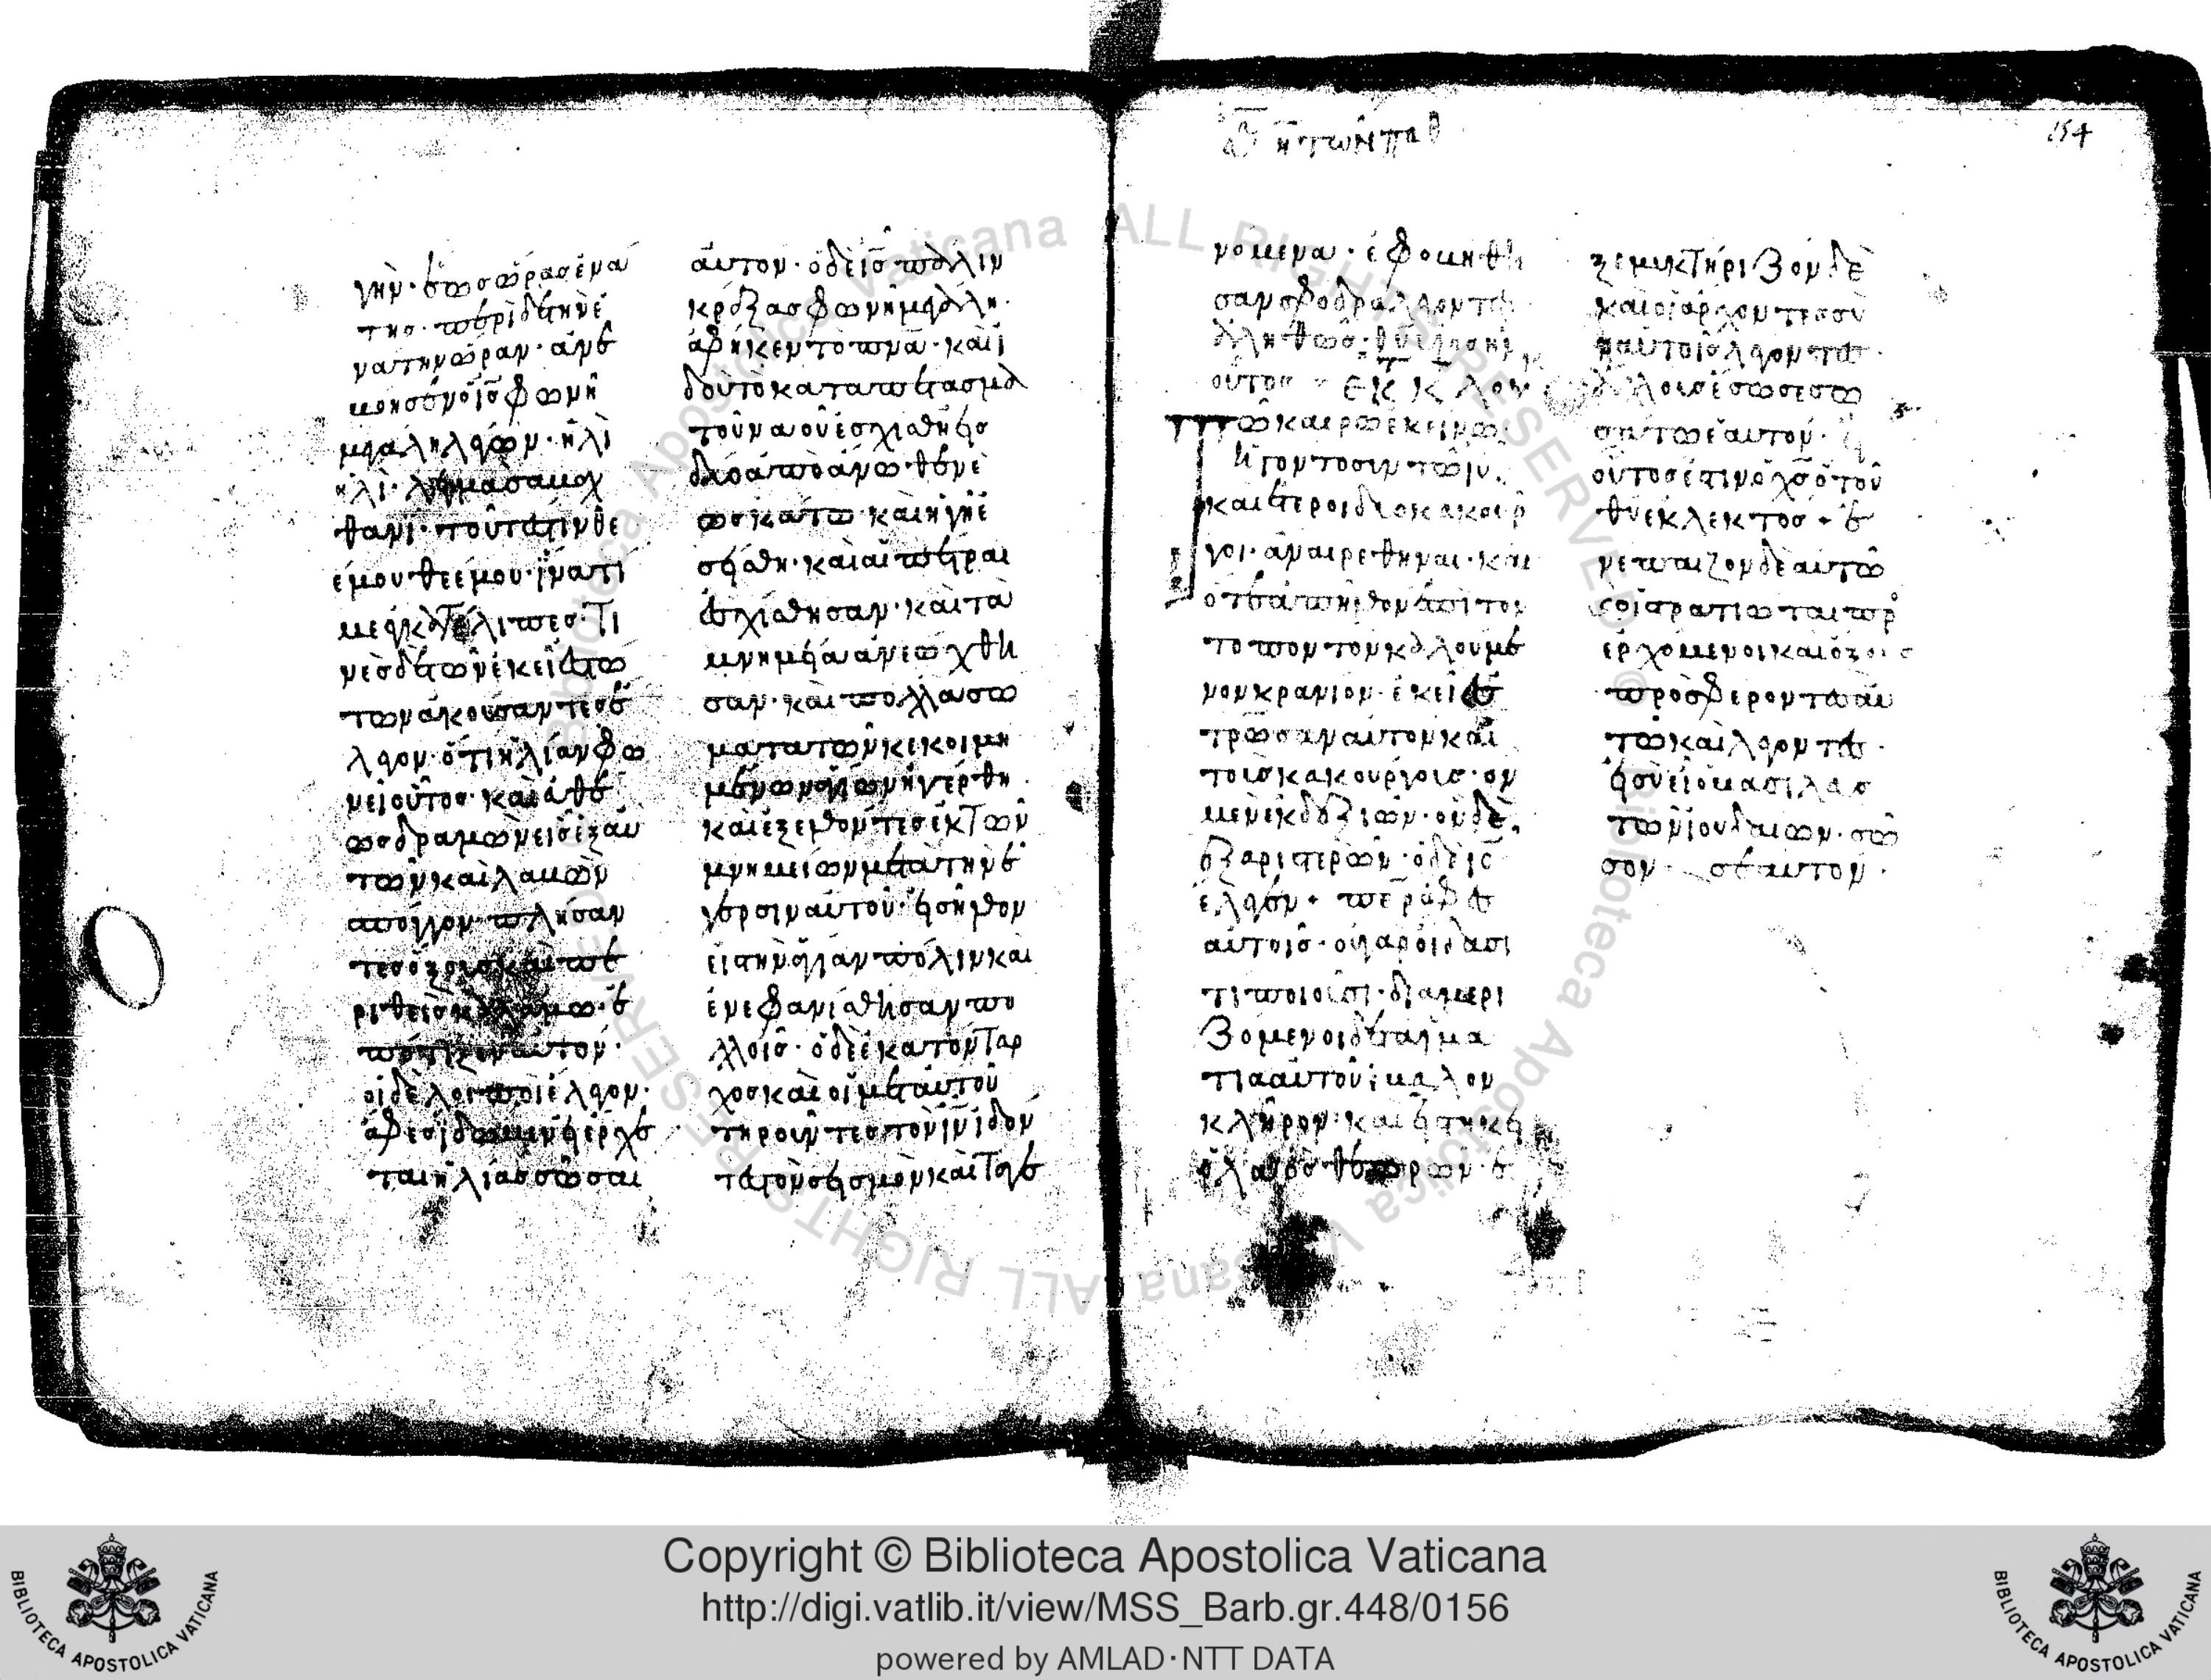 γὴν· ἕως ὥρας ἐνα
της· περὶ δὲ τὴν ἐ
νάτην ὥραν· ἀνε
βόησεν ὁ ις φωνῆ
μεγάλη λέγων· ἠλὶ
ἠλὶ· λιμὰ σαβαχ
θανί· τοῦτέστιν θεέ
μου θεέ μου· ἱνατί
με ἐγκατέλιπες· Τι
νὲς δὲ τῶν ἐκεῖ ἑστώ
των ἀκούσαντες ἔ
λεγον· ὅτι ἠλίαν φω
νεῖ οὗτος· καὶ εὐθέ
ως δραμὼν εἷς ἐξ αὐ
τῶν καὶ λαβὼν
σπόγγον· πλήσας
τε ὄξους καὶ πε
ριθεὶς καλάμω· ἐ
πότιζεν αὐτόν·
οἱ δὲ λοιποὶ ἔλεγον·
ἄφες ἴδωμεν εἰ ἔρχε
ται ἠλίας σῶσαι
αὐτον· ὁ δὲ ις πάλιν
κράξας φωνῆ μεγάλη·
ἀφῆκεν τὸ πνα· καὶ ἰ
δοὺ τὸ καταπέτασμα
τοῦ ναοῦ ἐσχίσθη εἰς
δύο ἀπὸ ἄνωθεν ἕ
ως κάτω· καὶ ἡ γῆ ἐ
σείσθη· καὶ αἱ πέτραι
ἐσχίσθησαν· καὶ τὰ
μνημεῖα ἀνεώχθη
σαν· καὶ πολλὰ σώ
ματα τῶν κεκοιμη
μένων ἁγίων ἠγέρθη·
καὶ ἐξελθόντες ἐκ Τῶν
μνημείων μετὰ τὴν ἔ
γερσιν αὐτοῦ· εἰσῆλθον
εἰς τὴν ἁγίαν πόλιν καὶ
ἐνεφανίσθησαν πο
λλοῖς· ὁ δὲ ἑκατόνΤαρ
χος καὶ οἱ μετ αὐτοῦ
τηροῦντες τὸν ιν ἰδόν
τες τὸν σεισμὸν καὶ Τὰ γε
154
νόμενα· ἐφοβήθη
σαν σφόδρα λέγοντες·
ἀληθῶς· θυ υἱὸς ἦν
οὗτος ΕΚ Τ Κ ΛΟΥΚ
Τῶ καιρῶ ἐκείνω·
ἤγοντο σὺν τῶ ιυ·
καὶ ἕτεροι δύο κακοῦρ
γοι· ἀναιρεθῆναι· καὶ
ὅτε ἀπῆλθον ἐπὶ τὸν
τόπον τὸν καλούμε
νον κρανίον· ἐκεῖ ἐσ
τρωσαν αὐτὸν καὶ
τοὺς κακούργους· ὃν
μὲν ἐκ δεξιῶν· ὃν δὲ
ἐξ ἀριστερῶν· ὁ δὲ ις
ἔλεγεν· περ ἄφες
αὐτοῖς· οὐ γὰρ οἴδασι
τί ποιοῦσι· διαμερι
ζόμενοι δὲ τὰ ἱμά
τια αὐτοῦ ἔβαλον
κλῆρον· καὶ εἱστήκει
ὁ λαὸς θεωρῶν· ἐ
ξεμυκΤήριζον δὲ
καὶ οἱ ἄρχοντες σὺ
ν αὐτοῖς λέγοντες·
ἄλλους ἔσωσε σω
σάτω ἑαυτόν· εἰ
οὗτός ἐστιν ὁ χς ὁ τοῦ
θυ ἐκλεκτός· ἐ
νέπαιζον δὲ αὐτῶ
οἱ στρατιῶται προσ
ερχόμενοι καὶ ὄξος
προσφέροντες αὐ
τῶ καὶ λέγοντες·
εἰ σὺ εἶ ὁ βασιλεὺς
τῶν ἰουδαίων· σῶ
σον σεαυτόν·
Copyright © Biblioteca Apostolica Vaticana
http://digi.vatlib.it/view/MSS_Barb.gr.448/0156
powered by AMLAD·NTT DATA